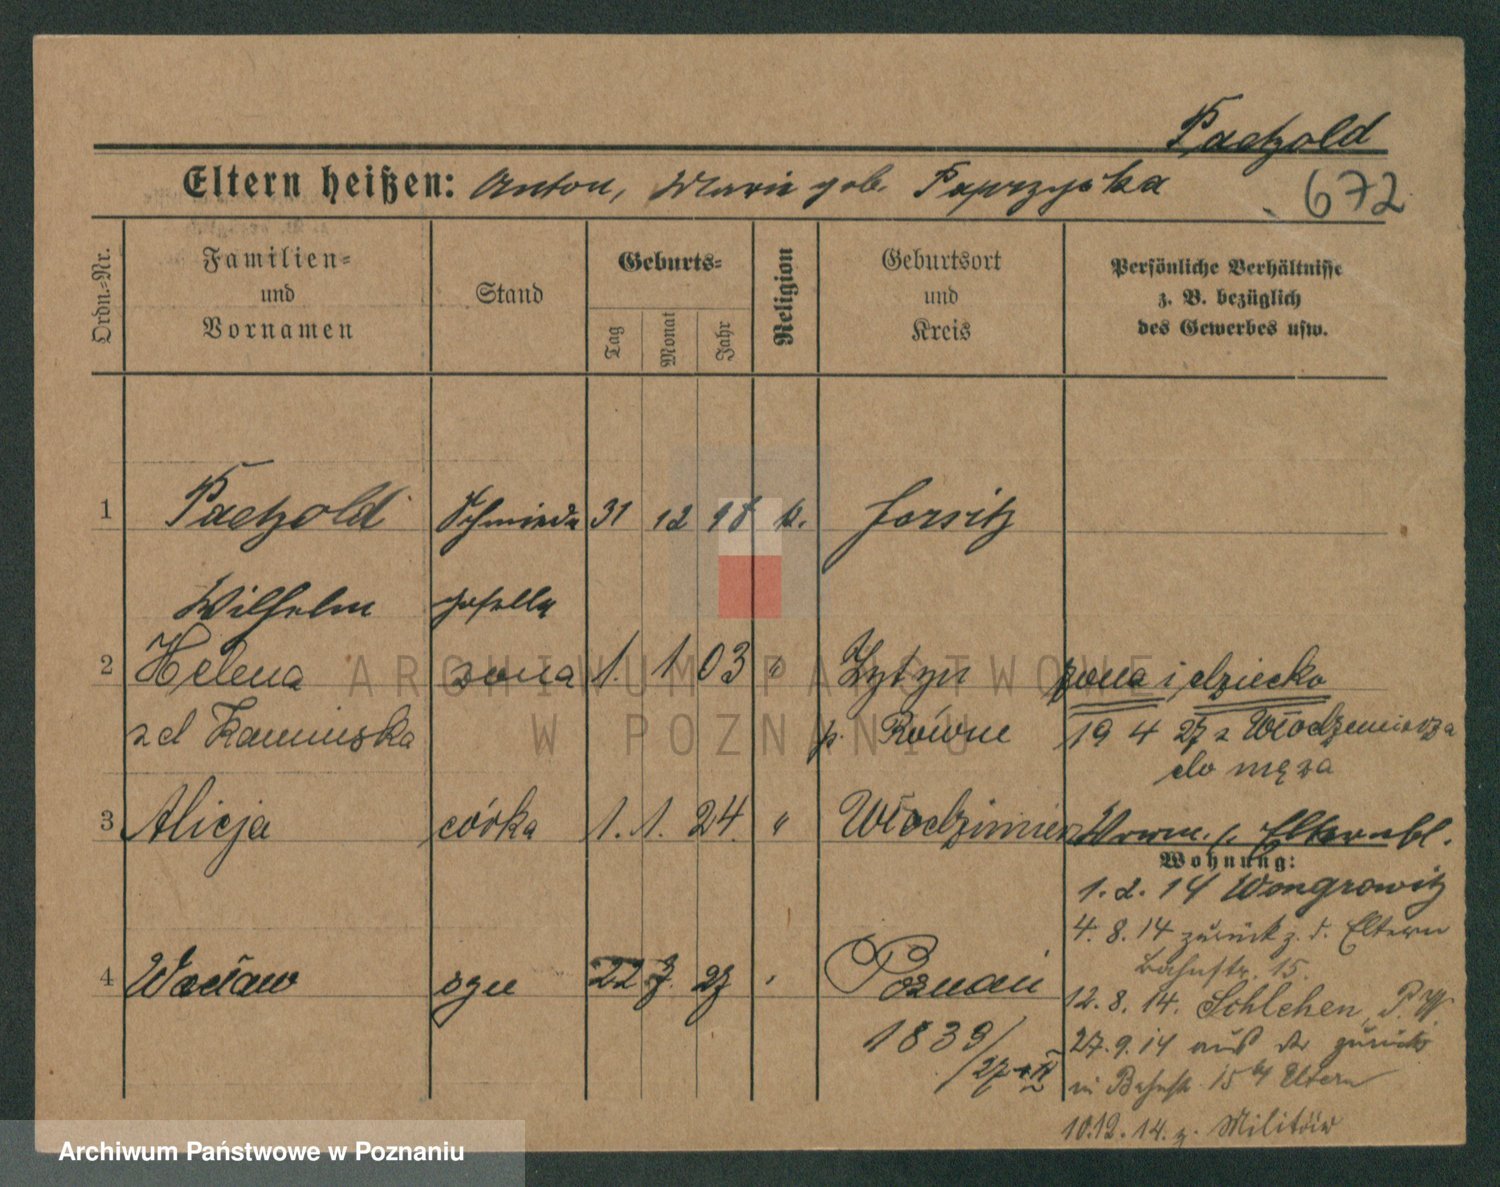 Paetzold
Eltern heißen: Anton, Marie geb. Paprzycka
672
Ordn.-Nr.
Familien-
und
Vornamen
Stand
Geburts-
Tag
Monat
Jahr
Religion
Geburtsort
und
Kreis
Persönliche Verhältnisse
z. B. bezüglich
des Gewerbes usw.
1 Paetzold Schmiede 31 12 98 k.
Wilhelm geselle
2 Helena żona 1. 1 03 " Żytyn żona i dziecko
zd Kamińska p. Równe 19 4 27 z Włodzimierza
do męża
3 Alicja córka 1. 1. 24. " Włodzimierz
Wohnung:
1. 2. 14 Wongrowitz
4. 8. 14 zurück z. d. Eltern
Bahnstr. 15.
4 Wacław syn 22 7. 27 " Poznań
12. 8. 14. Schlehen, P. W.
1839/27
27. 9. 14 aus der zurück
in Bahnstr. 15 bei Eltern
10.12. 14. z. Militär
ARCHIWUM PAŃSTWOWE
W POZNANIU
Archiwum Państwowe w Poznaniu